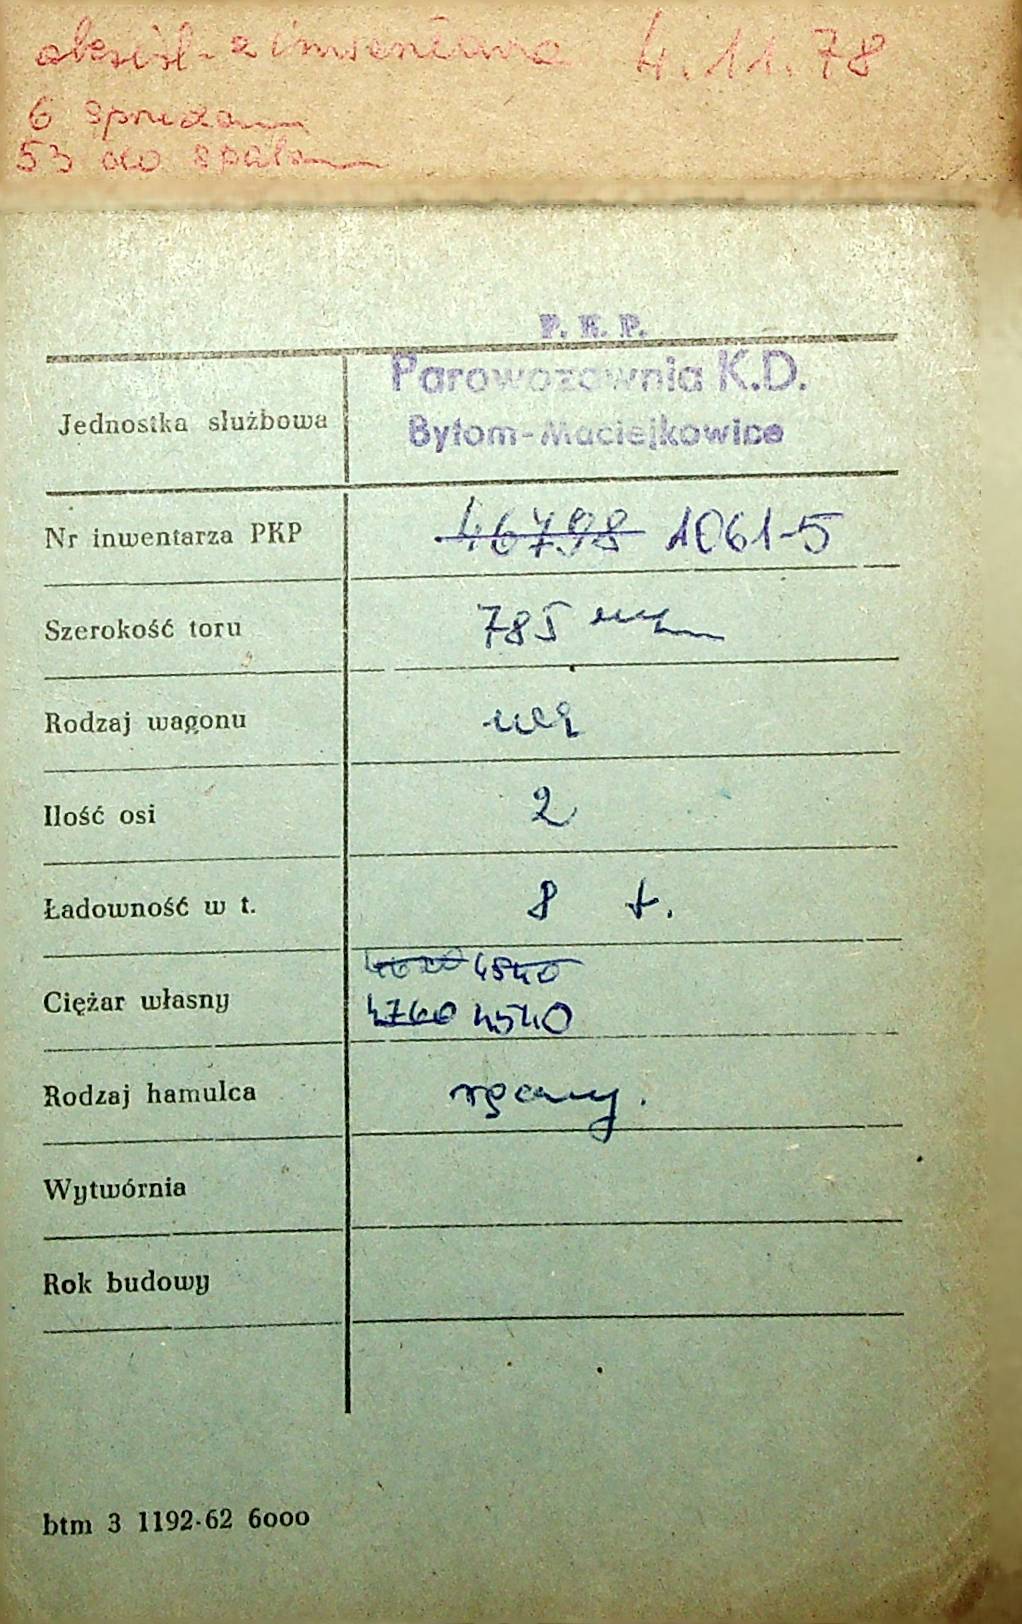 z inwentarza 4.11.78
6 sprzedam
53 do spalenia
P. K. P.
Parowozownia K.D.
Bytom-Maciejkowice
Jednostka służbowa
Nr inwentarza PKP 46798 1061-5
Szerokość toru 785 mm
Rodzaj wagonu
Ilość osi 2
Ładowność w t. 8 t.
4540
Ciężar własny 4760 4540
Rodzaj hamulca ręczny.
Wytwórnia
Rok budowy
btm 3 1192-62 6000